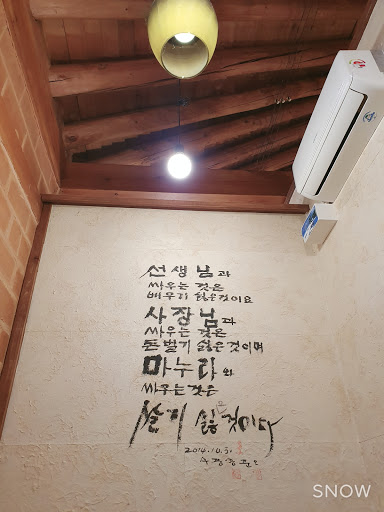 선생님과
싸우는 것은
배우기 싫은 것이요
사장님과
싸우는 것은
돈벌기 싫은 것이며
마누라와
싸우는 것은
살기 싫은 것이다
2014.10.31
SNOW